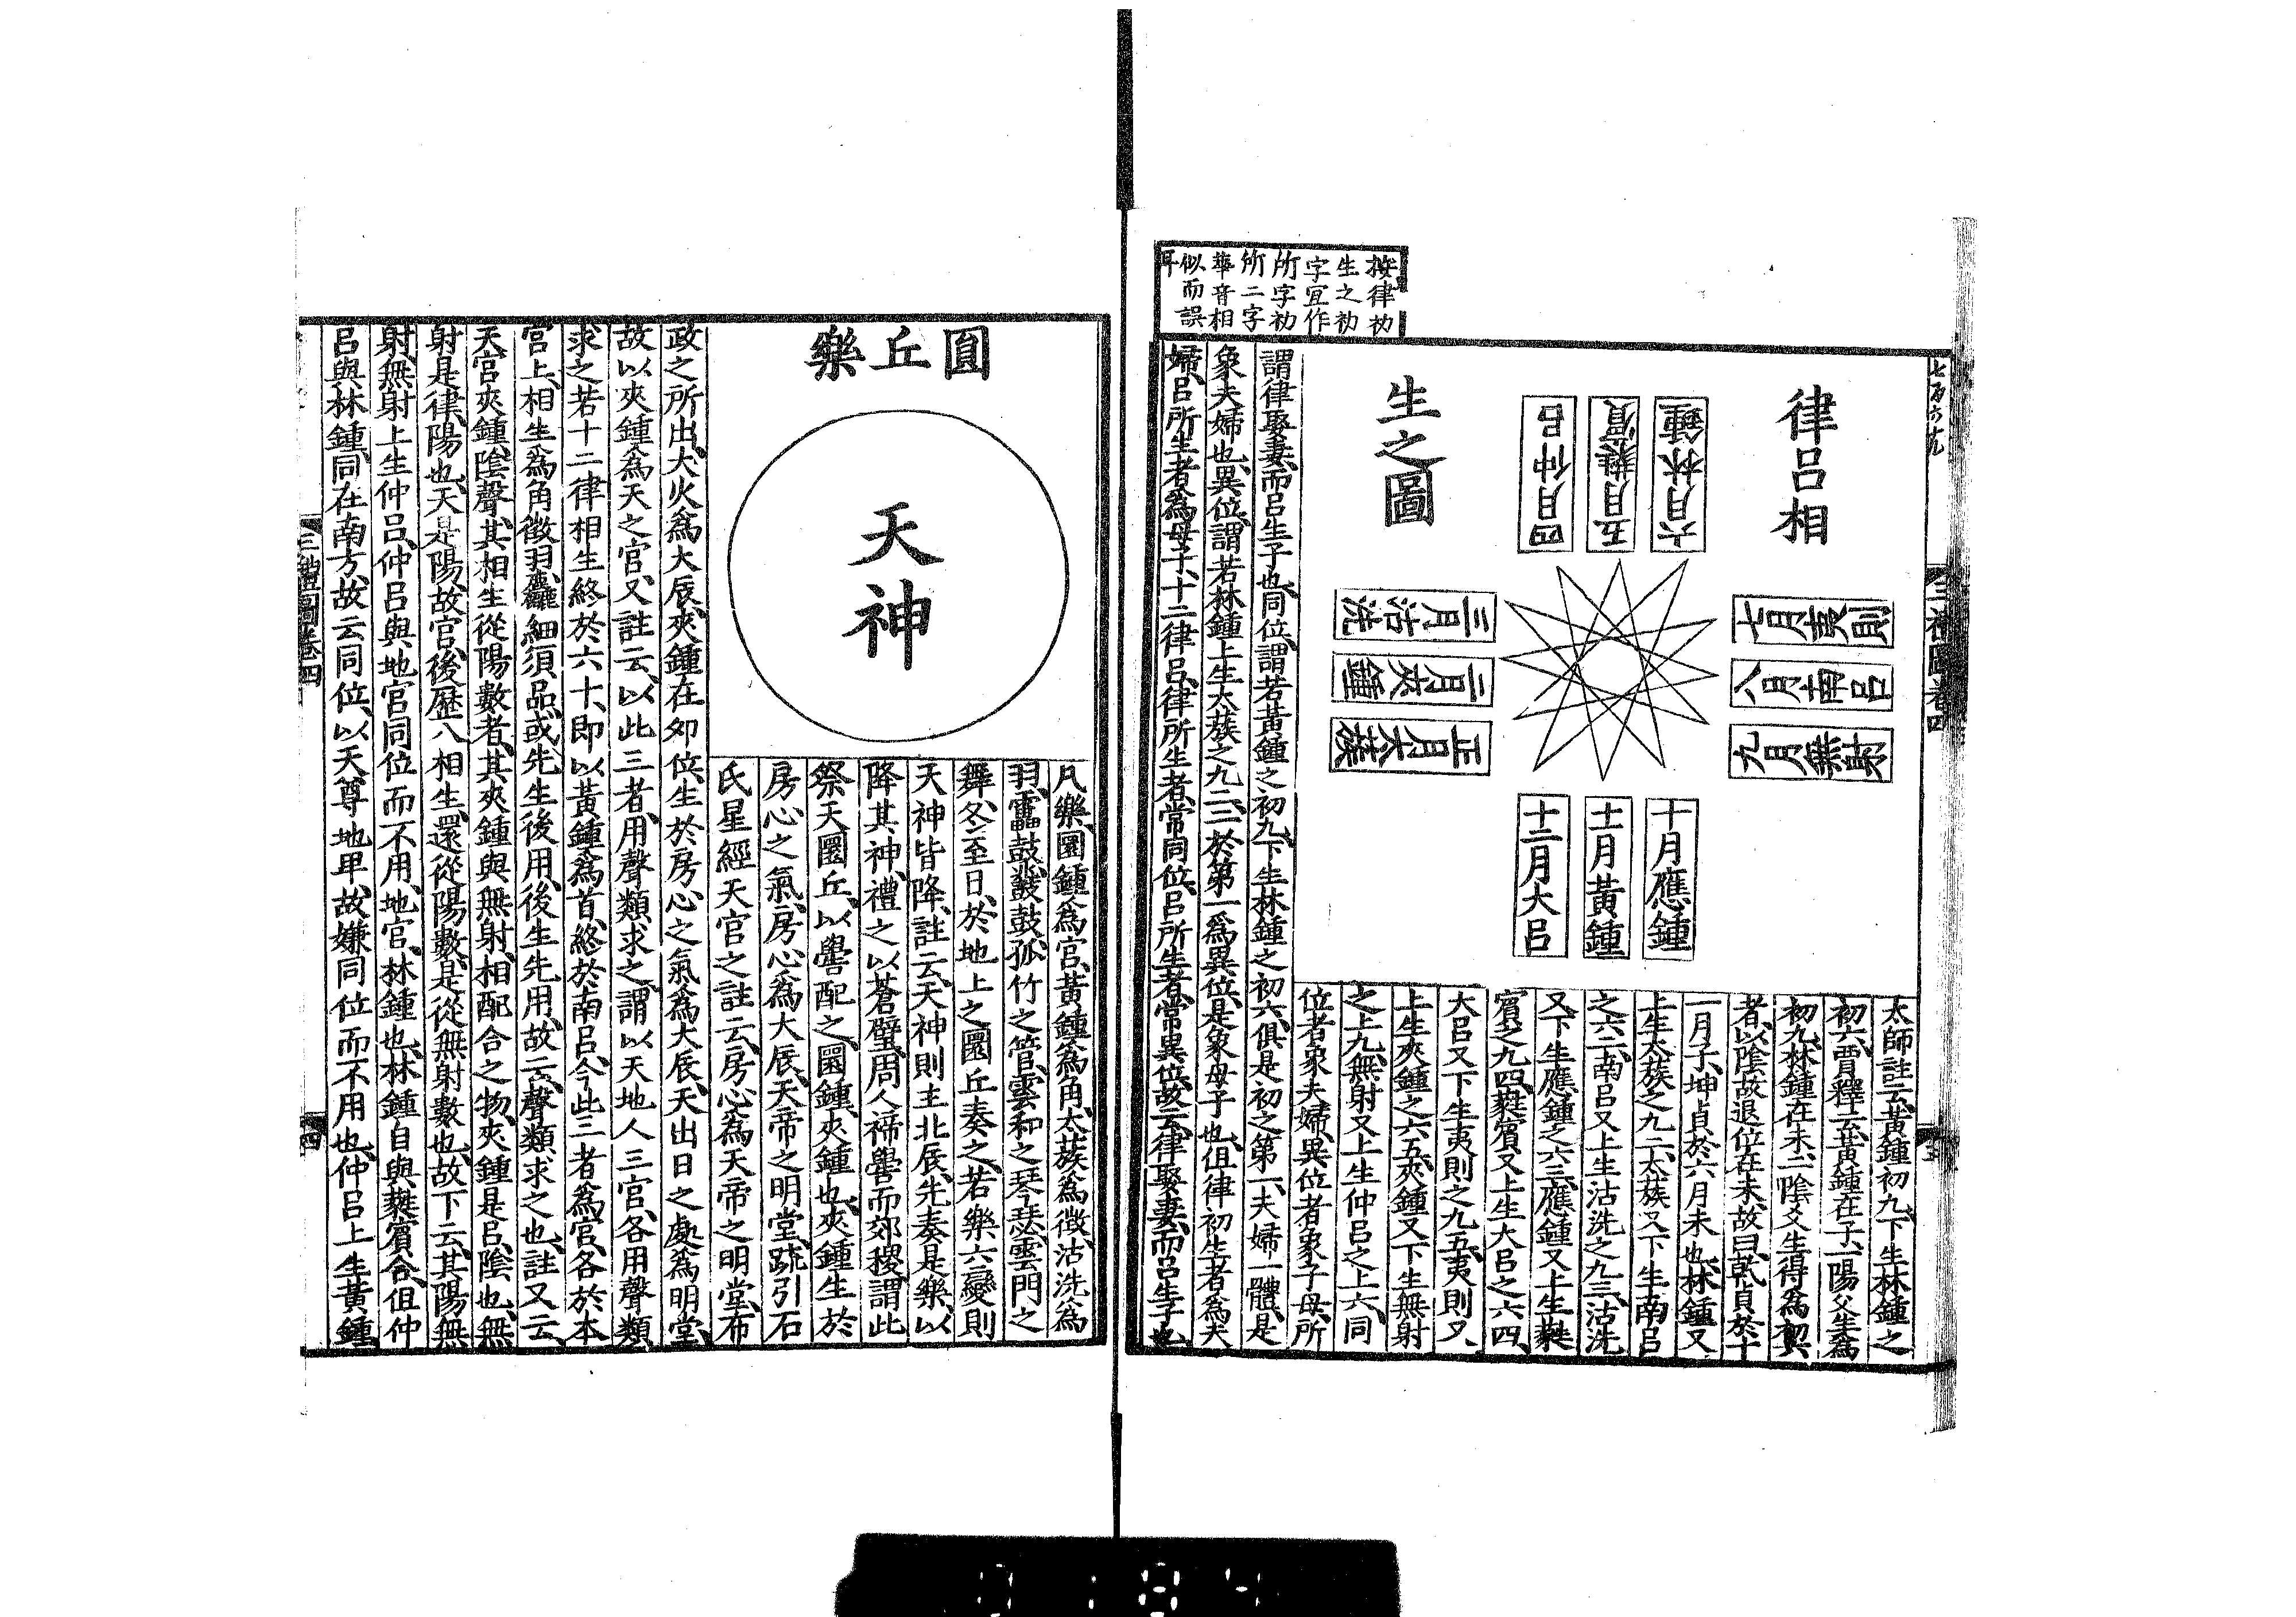 三禮圖卷四
按律初
生之初
字宜作
所字初
所二字
華音相
似而誤
耳
律呂相
生之圖
六月林鍾
五月蕤賓
四月仲呂
七月夷則
八月南呂
九月無射
三月沽洗
二月夾鍾
正月太蔟
十月應鍾
十一月黃鍾
十二月大呂
太師註云黃鍾初九下生林鍾之
初六賈釋云黃鍾在子一陽爻生爲
初九林鍾在未二陰爻生得爲初六
者以陰故退位在未故曰乾貞於十
一月子坤貞於六月未也林鍾又
上生太蔟之九二太蔟又下生南呂
之六二南呂又上生沽洗之九三沽洗
又下生應鍾之六三應鍾又上生蕤
賓之九四蕤賓又上生大呂之六四
大呂又下生夷則之九五夷則又
上生夾鍾之六五夾鍾又下生無射
之上九無射又上生仲呂之上六同
位者象夫婦異位者象子母所
謂律娶妻而呂生子也同位謂若黃鍾之初九下生林鍾之初六俱是初之第一夫婦一體是
象夫婦也異位謂若林鍾上生太蔟之九二二於第一爲異位是象母子也但律初生者爲夫
婦呂所生者爲母子十二律呂律所生者常同位呂所生者常異位故云律娶妻而呂生子也
圓丘樂
天神
凡樂圜鍾爲宮黃鍾爲角太蔟爲徵沽洗爲
羽靁鼓鼗鼓孤竹之管雲和之琴瑟雲門之
舞冬至日於地上之圜丘奏之若樂六變則
天神皆降註云天神則主北辰先奏是樂以
降其神禮之以蒼璧周人禘嚳而郊稷謂此
祭天圜丘以嚳配之圜鍾夾鍾也夾鍾生於
房心之氣房心爲大辰天帝之明堂䟽引石
氏星經天官之註云房心爲天帝之明堂布
政之所出大火爲大辰夾鍾在夘位生於房心之氣爲大辰天出日之處爲明堂
故以夾鍾爲天之宮又註云以此三者用聲類求之謂以天地人三宮各用聲類
求之若十二律相生終於六十即以黃鍾爲首終於南呂今此三者爲宮各於本
宮上相生爲角徵羽麤細須品或先生後用後生先用故云聲類求之也註又云
天宮夾鍾陰聲其相生從陽數者其夾鍾與無射相配合之物夾鍾是呂陰也無
射是律陽也天是陽故宮後歷八相生還從陽數是從無射數也故下云其陽無
射無射上生仲呂仲呂與地宮同位而不用地宮林鍾也林鍾自與蕤賓合但仲
呂與林鍾同在南方故云同位以天尊地卑故嫌同位而不用也仲呂上生黃鍾
三禮圖卷四
四